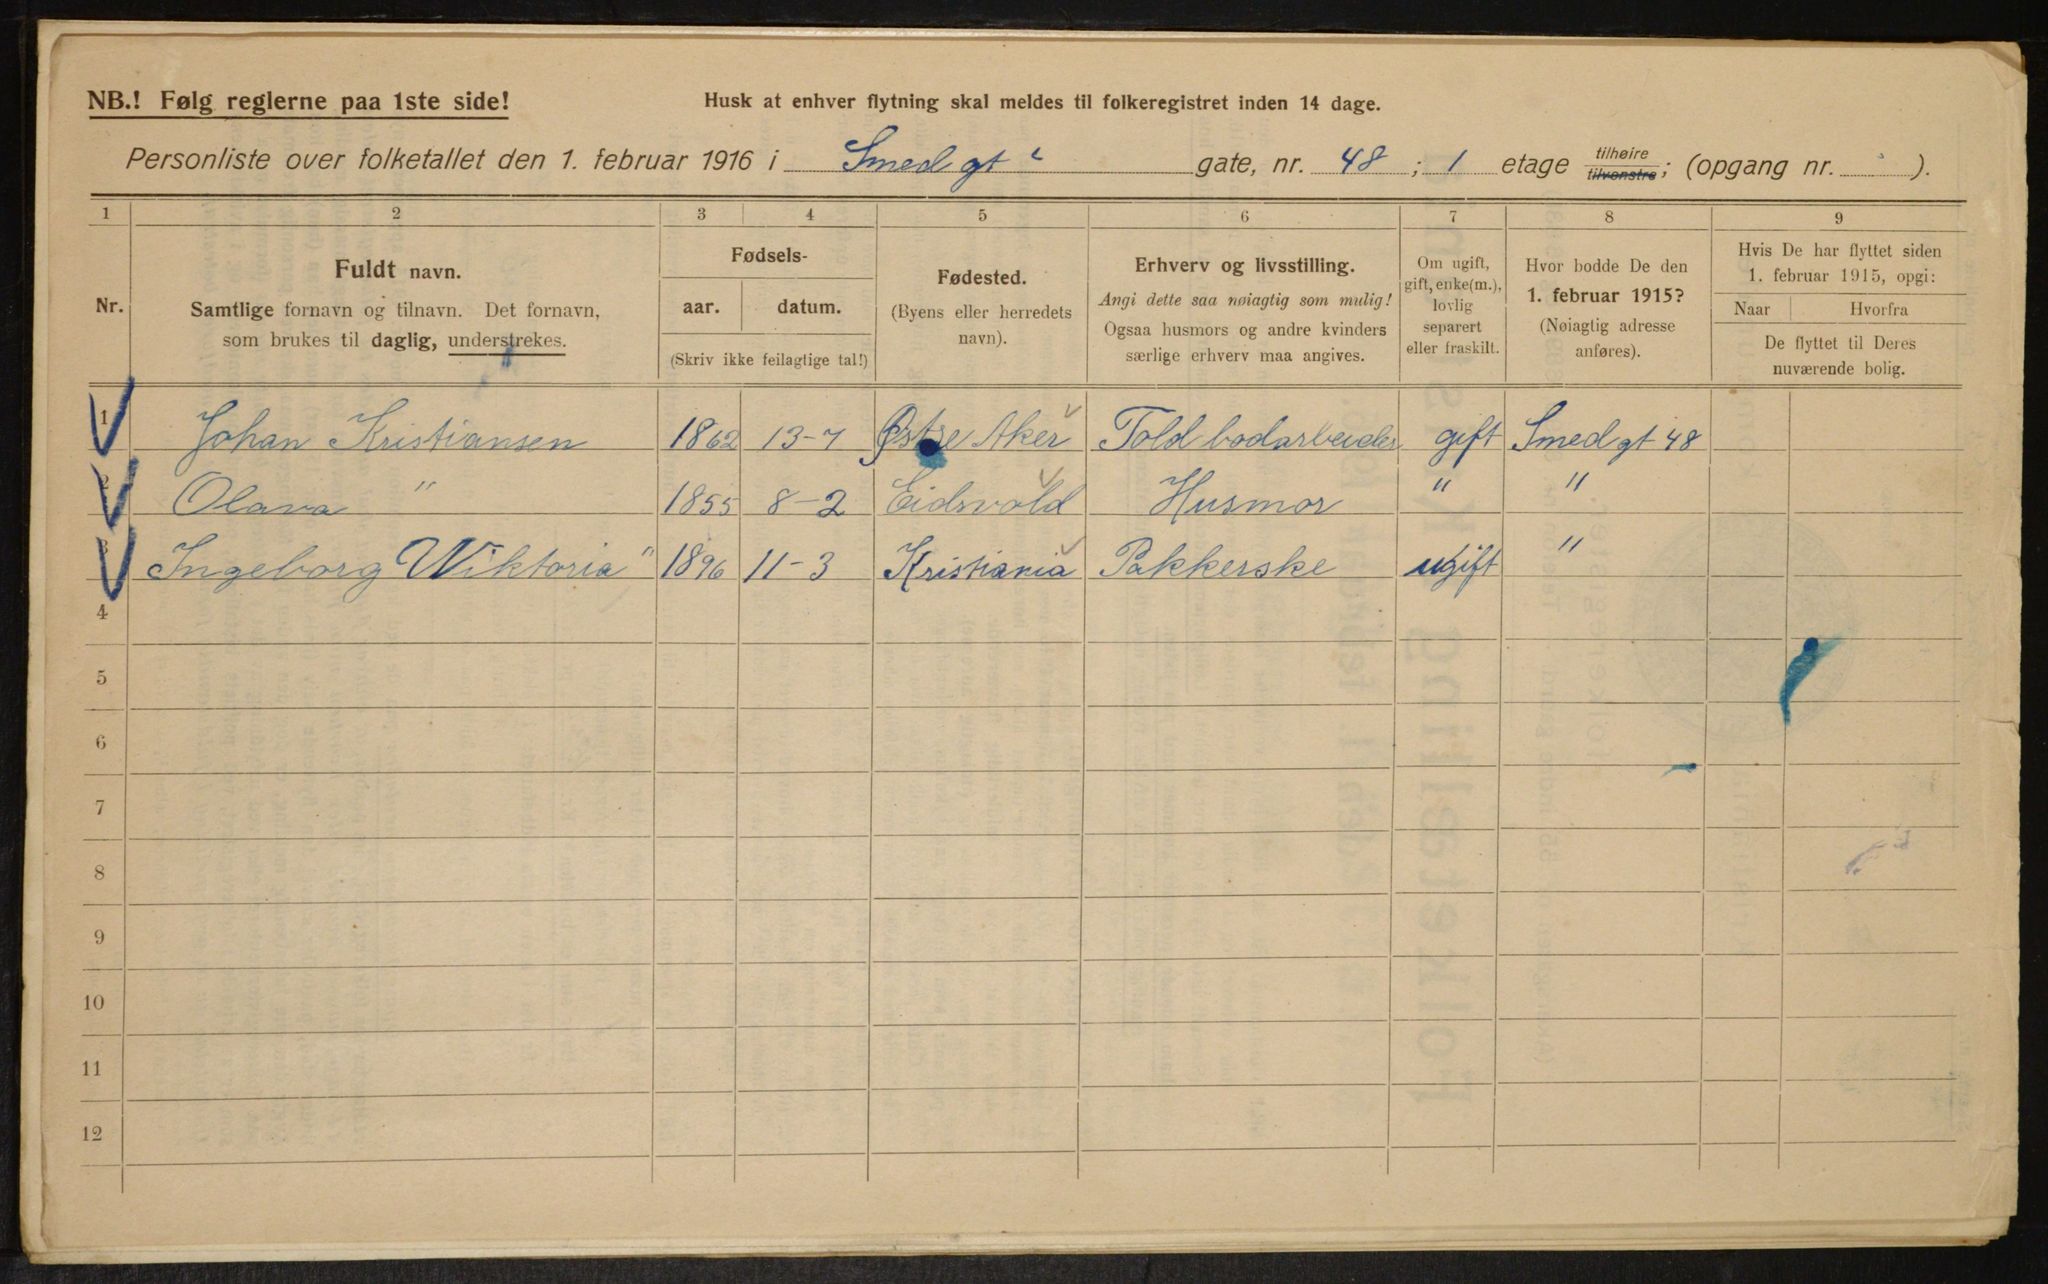 NB.! Følg reglerne paa 1ste side!
Husk at enhver flytning skal meldes til folkeregistret inden 14 dage.
Personliste over folketallet den 1. februar 1916 i Smed gt gate, nr. 48 ; 1 etage tilhøire tilvenstre; (opgang nr. ).
1 2 3 4 5 6 7 8 9
Nr.
Fuldt navn.
Samtlige fornavn og tilnavn. Det fornavn,
som brukes til daglig, understrekes.
Fødsels-
aar. datum.
(Skriv ikke feilagtige tal!)
Fødested.
(Byens eller herredets
navn).
Erhverv og livsstilling.
Angi dette saa nøiagtig som mulig!
Ogsaa husmors og andre kvinders
særlige erhverv maa angives.
Om ugift,
gift, enke(m.),
lovlig
separert
eller fraskilt.
Hvor bodde De den
1. februar 1915?
(Nøiagtig adresse
anføres).
Hvis De har flyttet siden
1. februar 1915, opgi:
Naar Hvorfra
De flyttet til Deres
nuværende bolig.
1 Johan Kristiansen 1862 13-7 Østre Aker Toldbodarbeider gift Smed gt 48
2 Olava " 1855 8-2 Eidsvold Husmor " "
3 Ingeborg Wiktoria " 1896 11-3 Kristiania Pakkerske ugift "
4
5
6
7
8
9
10
11
12